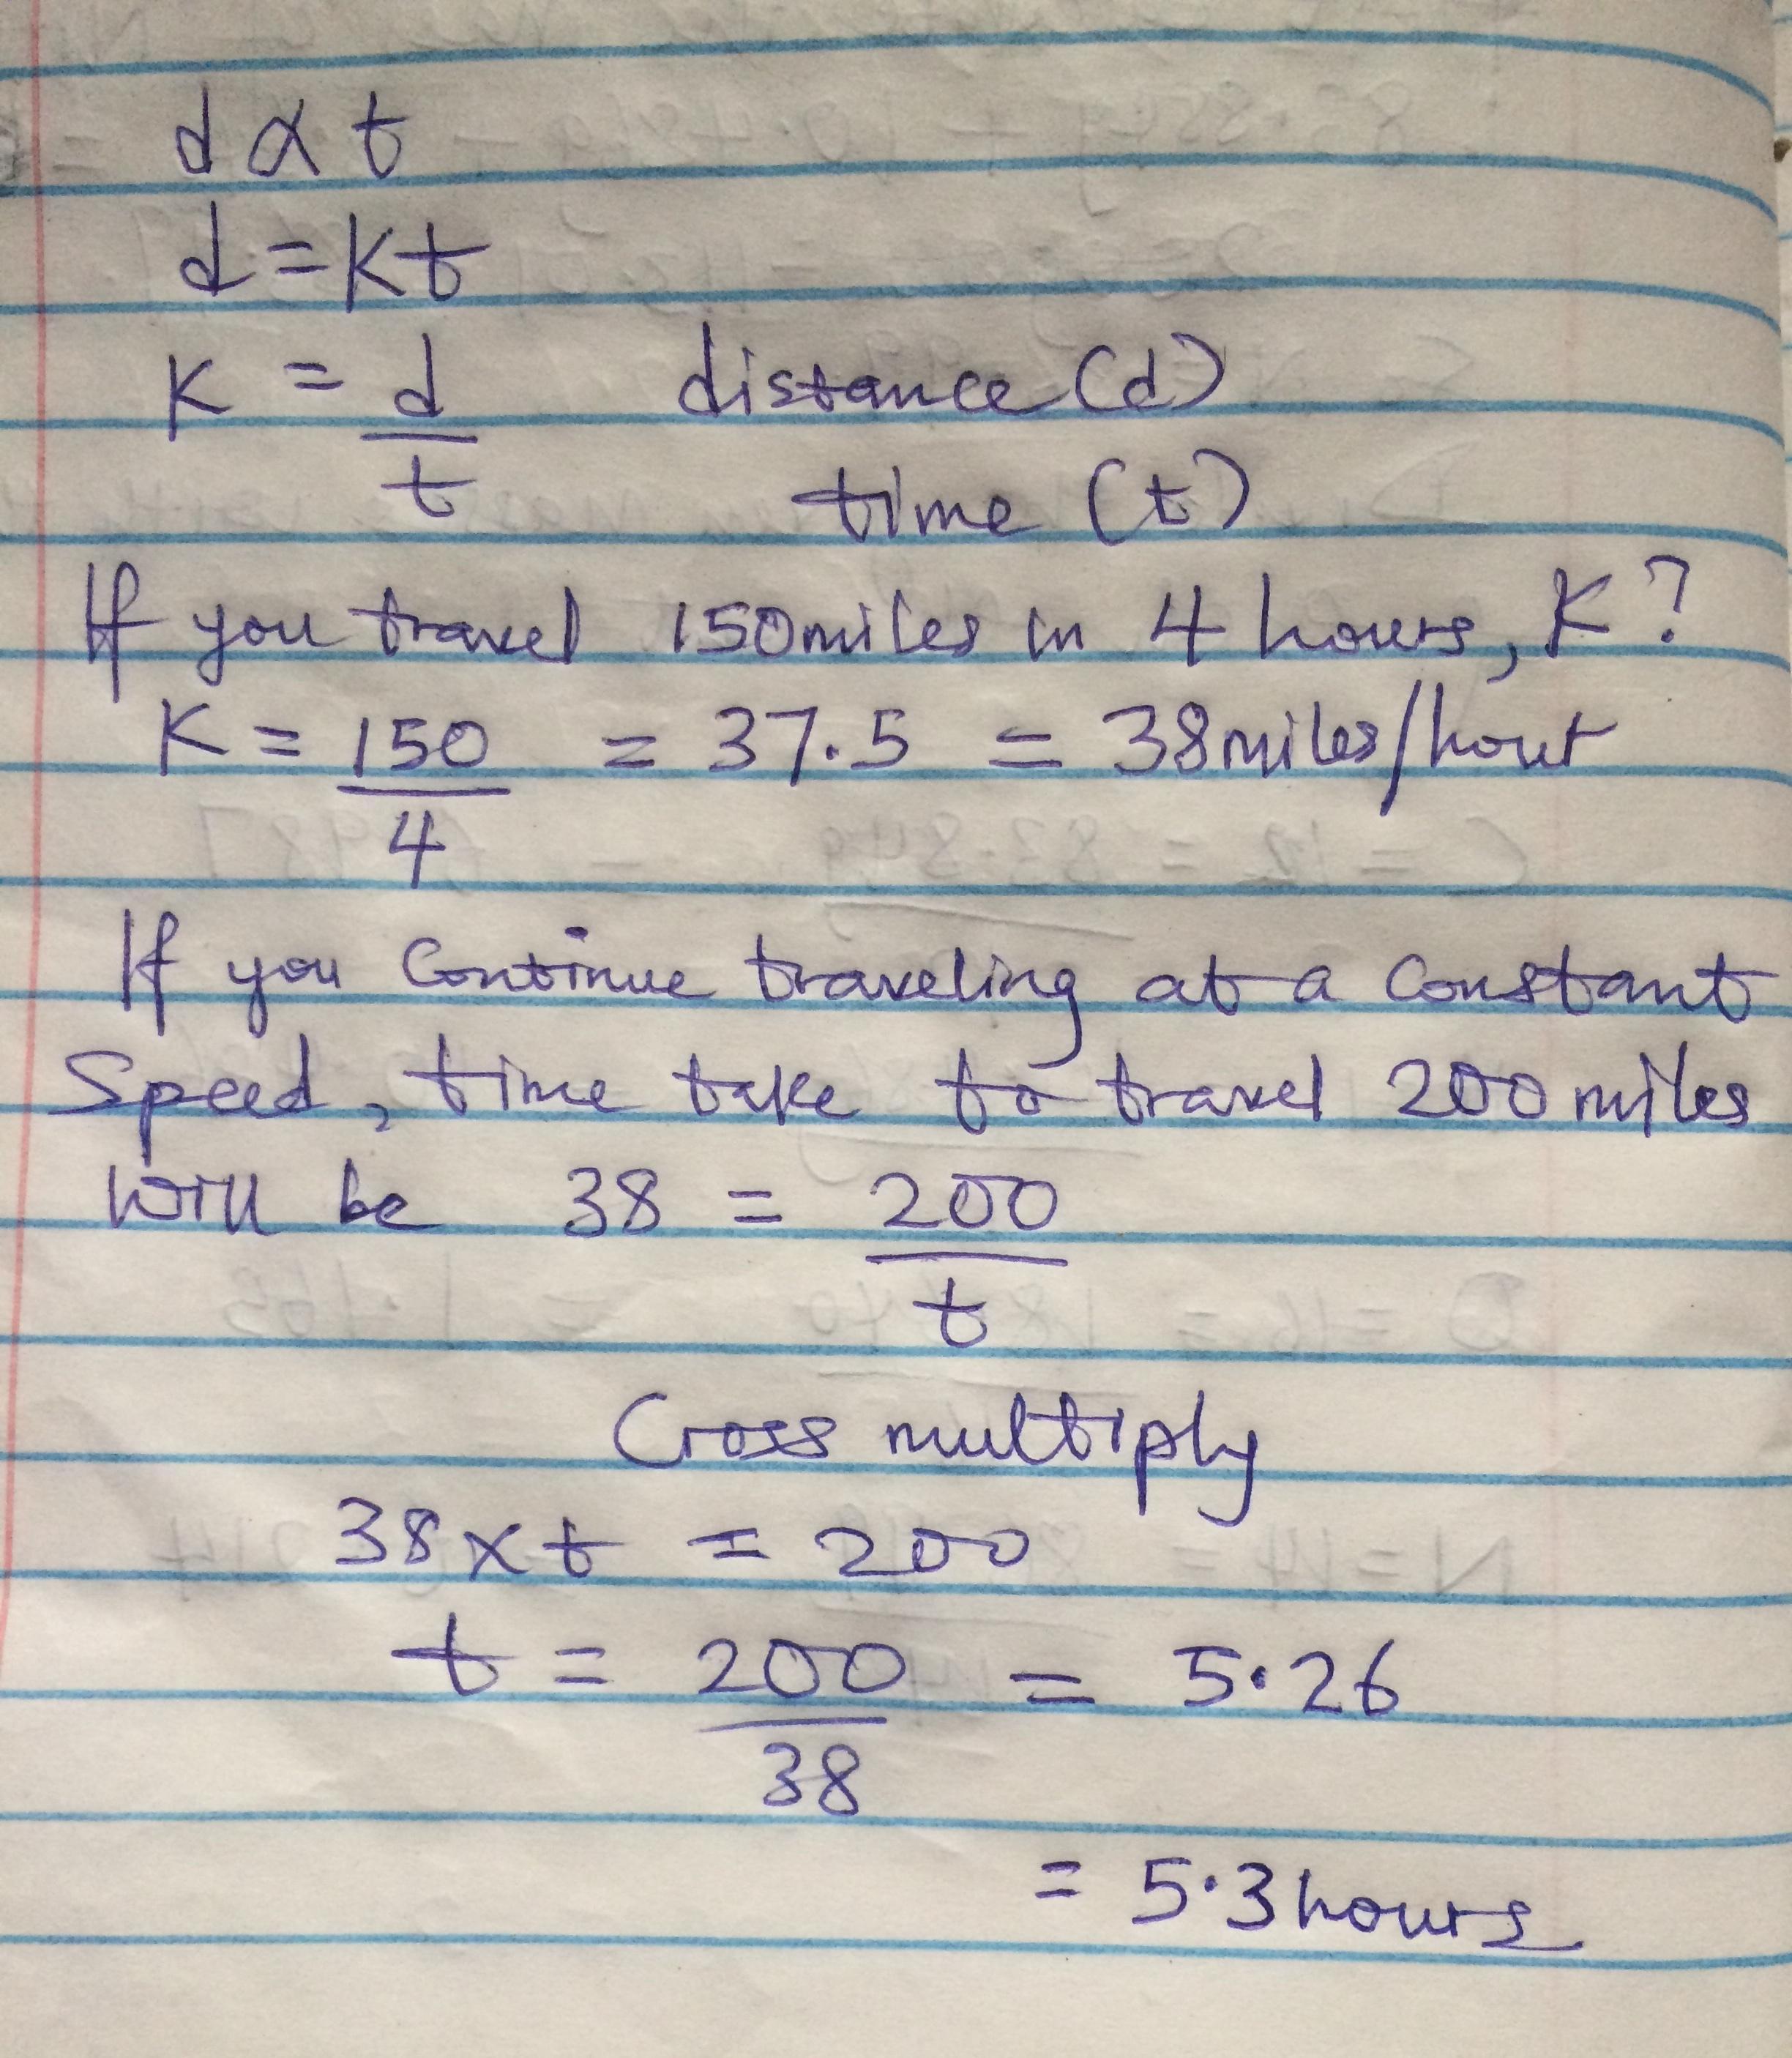 d α t
d = Kt
K = d/t distance (d)
time (t)
If you travel 150miles in 4 hours, K?
K = 150/4 = 37.5 = 38miles/hour
If you Continue traveling at a Constant
Speed, time take to travel 200 miles
will be 38 = 200/t
Cross multiply
38 x t = 200
t = 200/38 = 5.26
= 5.3 hours